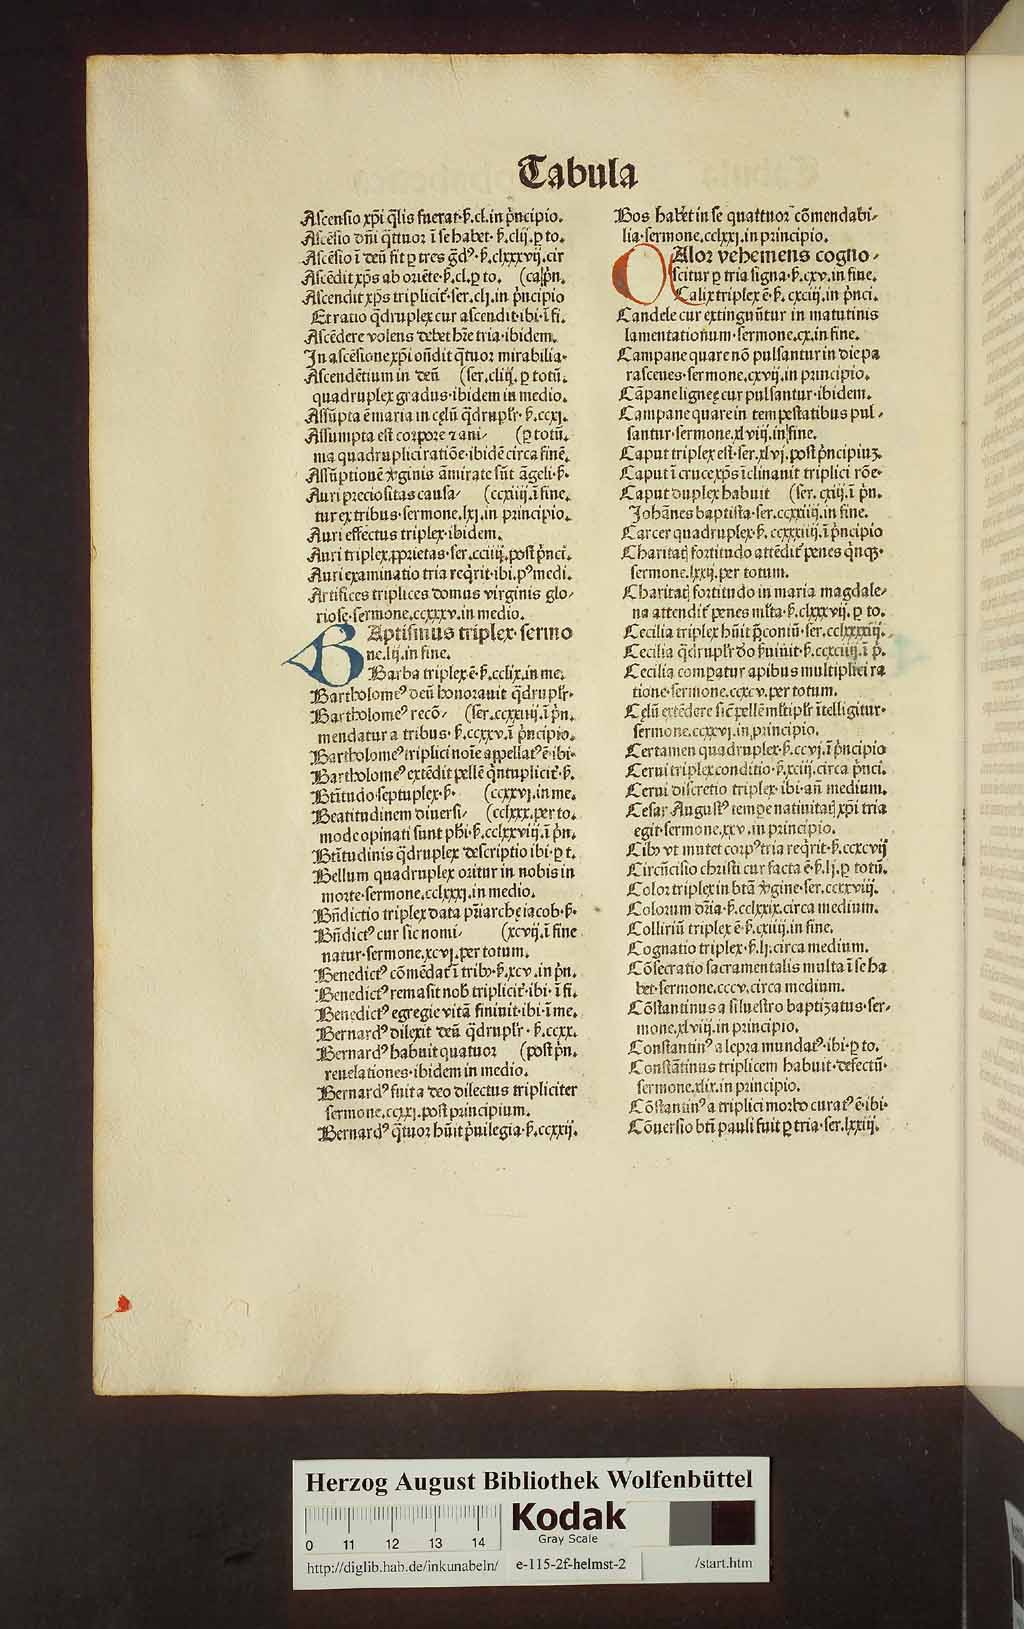 Tabula
Ascensio xp̄i q̄lis fuerat·ẜ.cl.in p̄ncipio.
Ascēsio dn̄i q̄ttuor ī se habet·ẜ.clij.ꝑ to.
Ascēsio ī deū fit ꝑ tres ḡdꝰ·ẜ.clxxxvij.cir
Ascēdit xp̄s ab oriēte·ẜ.cl.ꝑ to. (ca p̄pn.
Ascendit xp̄s triplicit᷑·ser.clj.in p̄ncipio
Et ratio q̄druplex cur ascendit·ibi·ī fi.
Ascēdere volens debet hr̄e tria·ibidem.
In ascēsione xp̄i on̄dit q̄tuor mirabilia·
Ascendētium in deū (ser.cliij.ꝑ totū.
quadruplex gradus·ibidem in medio.
Assūpta ē maria in cęlū q̄druplr̄·ẜ.ccxj.
Assumpta est corpore ⁊ ani⸗ (ꝑ totū.
ma quadruplici ratiōe·ibidē circa finē.
Assūptionē v̄ginis āmirate sūt āgeli·ẜ.
Auri preciositas causa⸗ (ccxiiij.ī fine.
tur ex tribus·sermone.lxj.in principio.
Auri effectus triplex·ibidem.
Auri triplex.ꝓprietas·ser.cciiij.post p̄nci.
Auri examinatio tria req̄rit·ibi.pꝰ medi.
Artifices triplices domus virginis glo⸗
riosę·sermone.ccxxxv.in medio.
BAptismus triplex·sermo
ne.lij.in fine.
Barba triplex ē·ẜ.cclix.in me.
Bartholomeꝰ deū honorauit q̄druplr̄·
Bartholomeꝰ recō⸗ (ser.ccxxiiij.ī p̄n.
mendatur a tribus·ẜ.ccxxv.ī p̄ncipio.
Bartholomeꝰ triplici noīe appellatꝰ ē·ibi·
Bartholomeꝰ extēdit pellē q̄ntuplicit᷑·ẜ.
Btītudo septuplex·ẜ· (ccxxvj.in me.
Beatitudinem diuersi⸗ (cclxxx.per to.
mode opinati sunt phī·ẜ.cclxxviij.ī p̄n.
Btītudinis q̄druplex descriptio ibi·ꝑ t.
Bellum quadruplex oritur in nobis in
morte·sermone.cclxxxj.in medio.
Bn̄dictio triplex data pr̄iarchę iacob·ẜ·
Bn̄dictꝰ cur sic nomi⸗ (xcvij.ī fine
natur·sermone.xcvj.per totum.
Benedictꝰ cōmēdat᷑ ī tribꝰ·ẜ.xcv.in p̄n.
Benedictꝰ remāsit nob̄ triplicit᷑·ibi·ī fi.
Benedictꝰ egregie vitā finiuit·ibi·ī me.
Bernardꝰ dilexit deū q̄druplr̄·ẜ.ccxx.
Bernardꝰ habuit quatuor (post p̄n.
reuelationes·ibidem in medio.
Bernardꝰ fuit a deo dilectus tripliciter
sermone.ccxxj.post principium.
Bernardꝰ q̄tuor hūit p̄uilegia·ẜ.ccxxij.
Bos habet in se quattuor cōmendabi⸗
lia·sermone.cclxxj.in principio.
CAlor vehemens cogno⸗
scitur ꝑ tria signa·ẜ.cxv.in fine.
Calix triplex ē·ẜ.cxciij.in p̄nci.
Candele cur extinguūtur in matutinis
lamentationum·sermone.cx.in fine.
Campane quare nō pulsantur in die pa
rasceues·sermone.cxvij.in principio.
Cāpane ligneę cur pulsantur·ibidem.
Campane quare in tempestatibus pul⸗
santur·sermone.xlviij.in fine.
Caput triplex est·ser.xlvj.post p̄ncipiuꝫ.
Caput ī cruce xp̄s īclinauit triplici rōe·
Caput duplex habuit (ser.cxiij.ī p̄n.
Johānes baptista·ser.ccxxiiij.in fine.
Carcer quadruplex·ẜ.ccxxxiiij.ī p̄ncipio
Charitatꝭ fortitudo attēdit᷑ penes q̄nqꝫ·
sermone.lxxij.per totum.
Charitatꝭ fortitudo in maria magdale⸗
na attendit᷑ penes ml̄ta·ẜ.clxxxvij.ꝑ to.
Cecilia triplex hūit p̄coniū·ser.cclxxxxiij.
Cecilia q̄druplr̄ do ẜuiuit·ẜ.ccxciiij.ī p̄.
Cecilia comꝑatur apibus multiplici ra
tione·sermone.ccxcv.per totum.
Cęlū extēdere sic̄ pellē ml̄tiplr̄ ītelligitur·
sermone.ccxxvj.in principio.
Certamen quadruplex·ẜ.ccvj.ī p̄ncipio
Cerui triplex conditio·ẜ.xciij.circa p̄nci.
Cerui discretio triplex·ibi·añ medium.
Cesar Augustꝰ tempe natiuitatꝭ xp̄i tria
egit·sermone.xxv.in principio.
Cibꝰ vt mutet᷑ corpꝰ tria req̄rit·ẜ.ccxcvij
Circūcisio christi cur facta ē·ẜ.lj.ꝑ totū.
Color triplex in btā v̄gine·ser.ccxxviij.
Colorum dr̄ia·ẜ.cclxxix.circa medium.
Colliriū triplex ē·ẜ.cxiiij.in fine.
Cognatio triplex·ẜ.lj.circa medium.
Cōsecratio sacramentalis multa ī se ha
bet·sermone.cccv.circa medium.
Cōstantinus a siluestro baptizatus·ser⸗
mone.xlviij.in principio.
Constantinꝰ a lepra mundatꝰ·ibi·ꝑ to.
Constātinus triplicem habuit·defectū·
sermone.xlix.in principio.
Cōstantinꝰ a triplici morbo curatꝰ ē·ibi·
Cōuersio btī pauli fuit ꝑ tria·ser.lxxiij.
Herzog August Bibliothek Wolfenbüttel
0 11 12 13 14
Kodak
Gray Scale
http://diglib.hab.de/inkunabeln/ e-115-2f-helmst-2 /start.htm